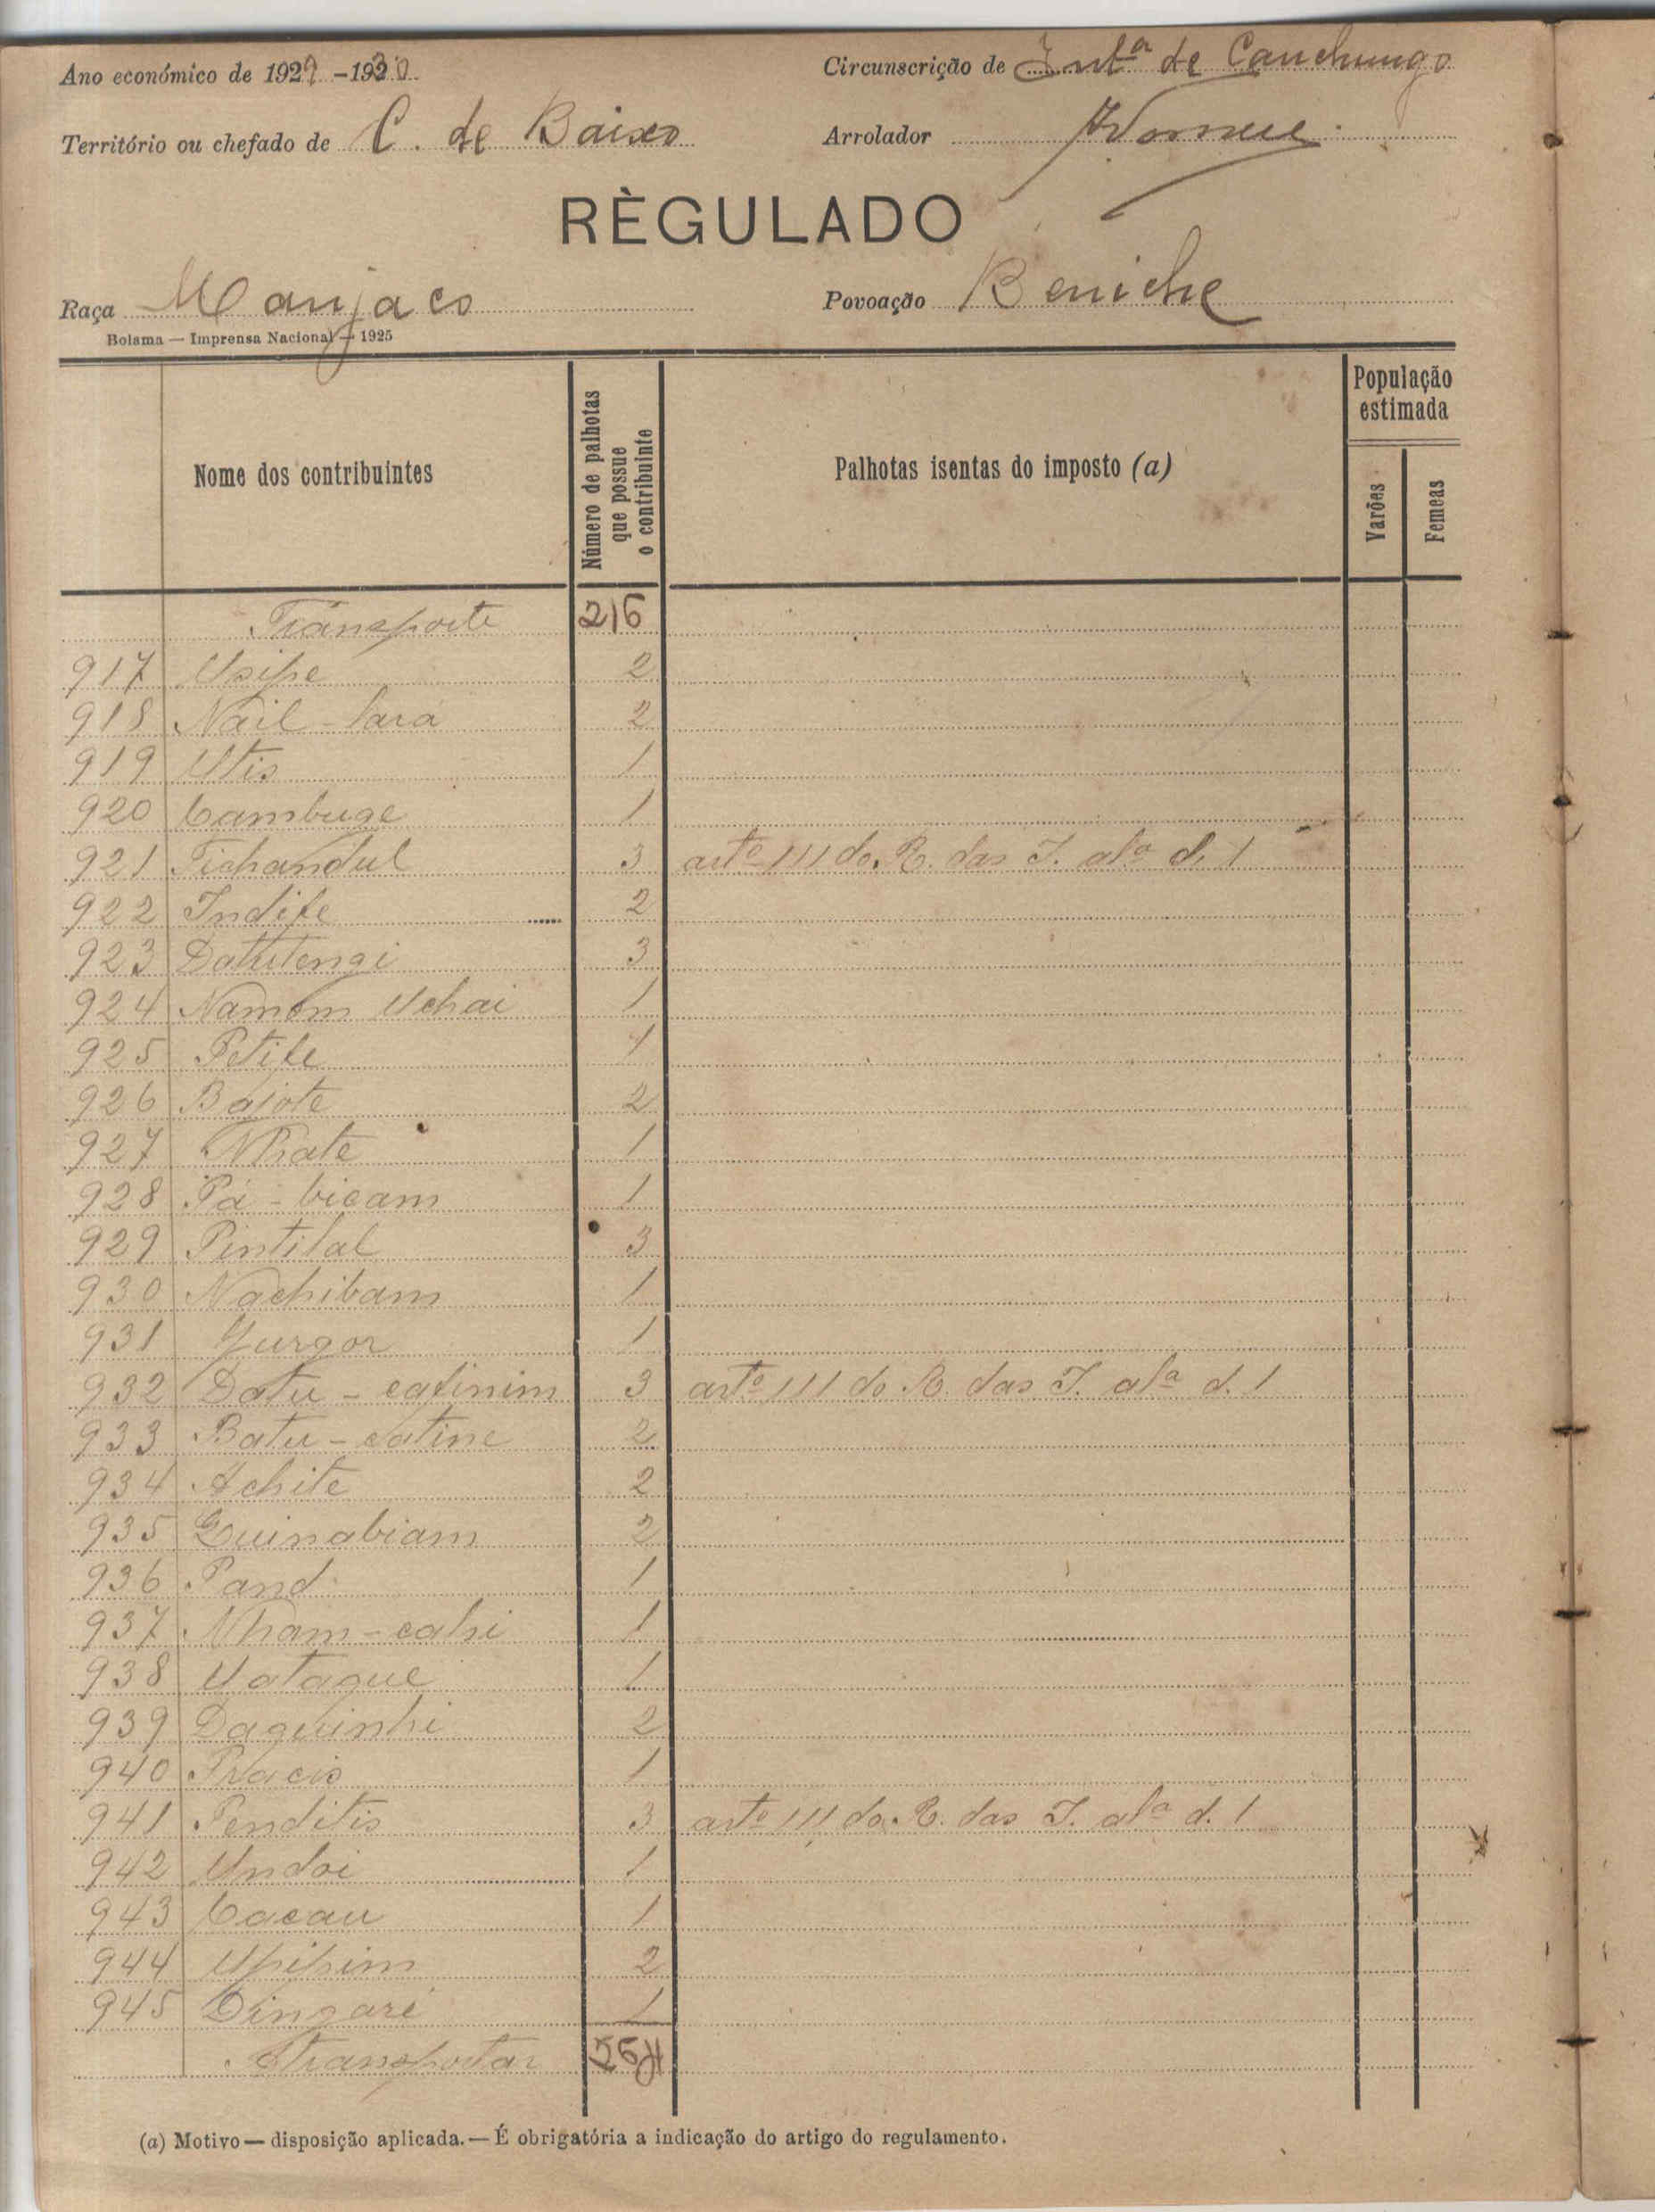 Ano económico de 1929 - 1930
Circunscrição de Intª de Canchungo
Território ou chefado de C. de Baixo
Arrolador
RÈGULADO
Raça Manjaco
Povoação Beniche
Bolama — Imprensa Nacional — 1925
Nome dos contribuintes
Número de palhotas que possue o contribuinte
Palhotas isentas do imposto (a)
População estimada
Varões
Femeas
Transporte 216
917 Usipe 2
918 Nail - lara 2
919 Utis 1
920 Cambuge 1
921 Tichandul 3 artº 111 do R. das I. alª d. 1
922 Indife 2
923 Datutengi 3
924 Namom Uchai 1
925 Petife 1
926 Bajote 2
927 Nhate 1
928 Pá - bicam 1
929 Pintilal 3
930 Nachibam 1
931 Gurgor 1
932 Datu - catinim 3 artº 111 do R. das I. alª d. 1
933 Batu - catine 2
934 Achite 2
935 Quinabiam 2
936 Pand 1
937 Nham - cahi 1
938 Uataque 1
939 Daquinhi 2
940 1
941 Penditis 3 artº 111 do R. das I. alª d. 1
942 Undoi 1
943 Cacau 1
944 Upipim 2
945 Dingaré 1
A transportar
(a) Motivo — disposição aplicada. — É obrigatória a indicação do artigo do regulamento.